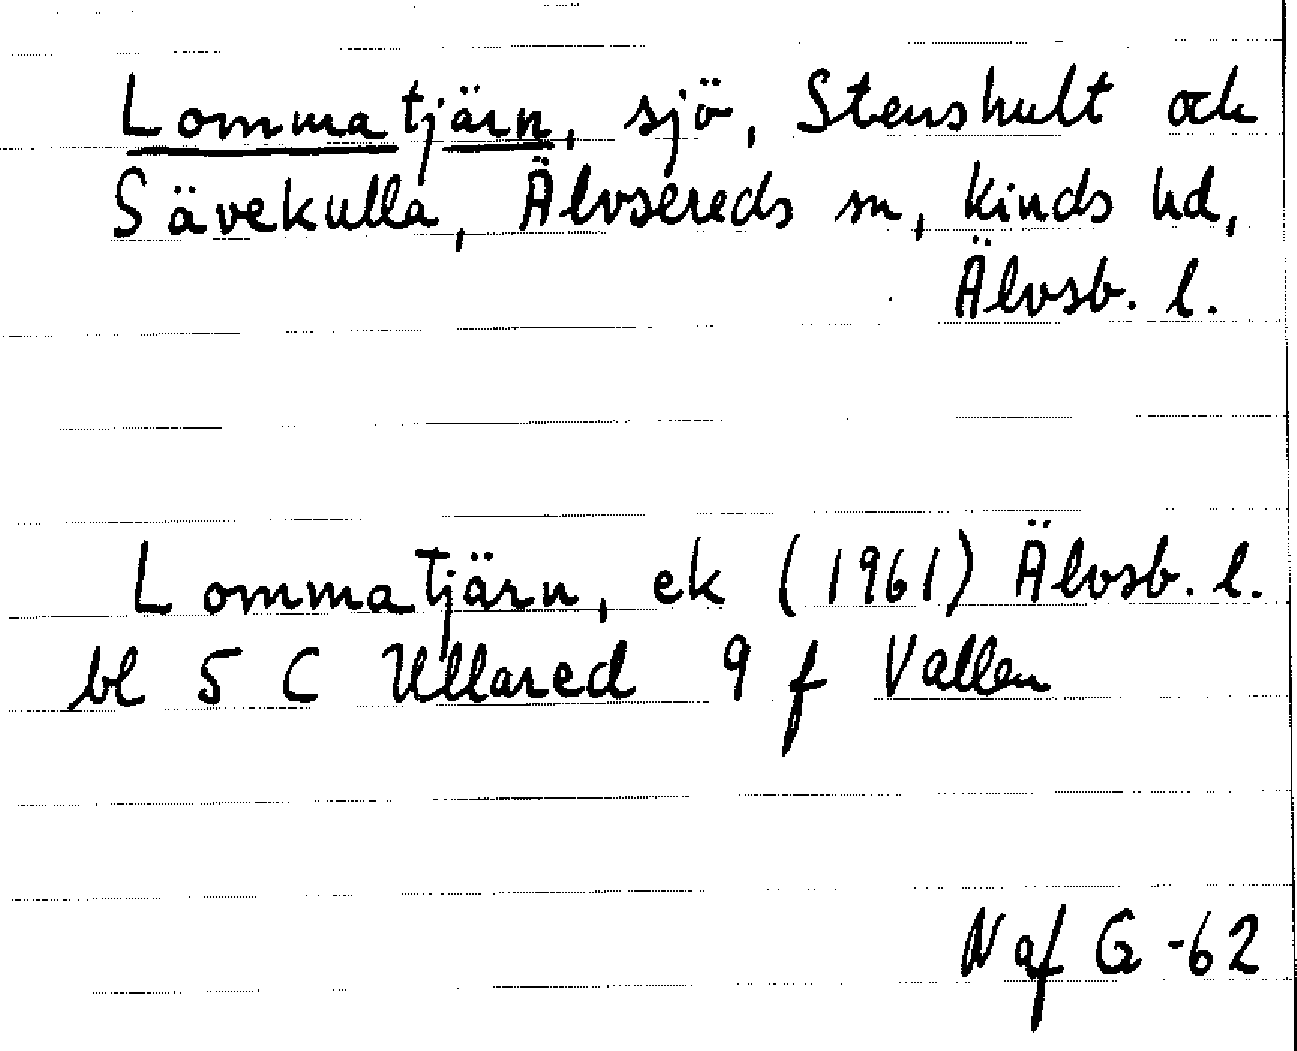 Lommatjärn, sjö, Stenshult och
Sävekulla, Älvsereds sn, Kinds hd,
Älvsb. l.
Lommatjärn, ek (1961) Älvsb. l.
bl 5 C Ullared 9 f Vallen
N af G -62